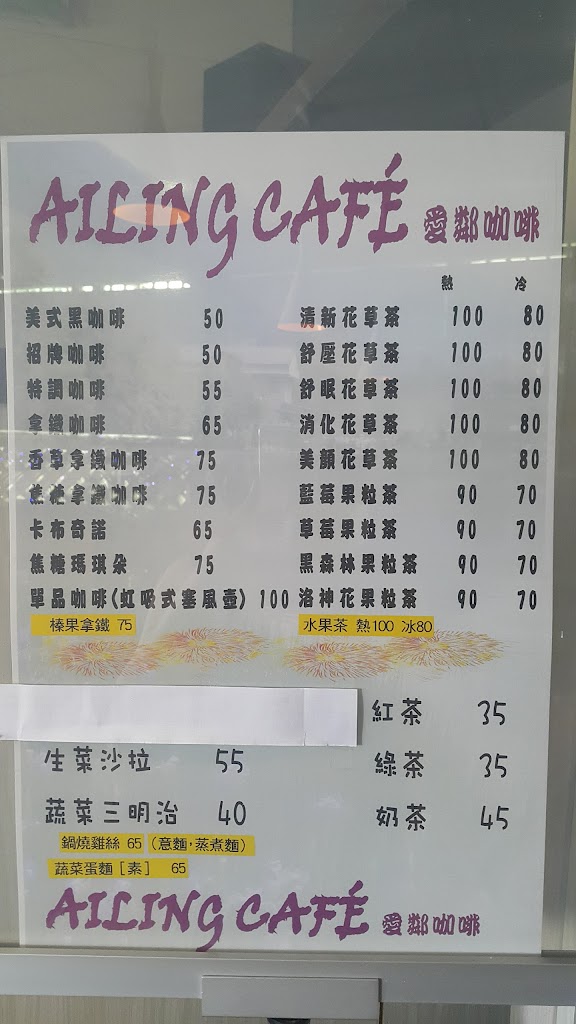 AILING CAFÉ 愛鄰咖啡
熱 冷
美式黑咖啡 50 清新花草茶 100 80
招牌咖啡 50 舒壓花草茶 100 80
特調咖啡 55 舒眠花草茶 100 80
拿鐵咖啡 65 消化花草茶 100 80
香草拿鐵咖啡 75 美顏花草茶 100 80
焦糖拿鐵咖啡 75 藍莓果粒茶 90 70
卡布奇諾 65 草莓果粒茶 90 70
焦糖瑪琪朵 75 黑森林果粒茶 90 70
單品咖啡(虹吸式塞風壺) 100 洛神花果粒茶 90 70
榛果拿鐵 75 水果茶 熱100 冰80
紅茶 35
生菜沙拉 55 綠茶 35
蔬菜三明治 40 奶茶 45
鍋燒雞絲 65 (意麵,蒸煮麵)
蔬菜蛋麵[素] 65
AILING CAFÉ 愛鄰咖啡